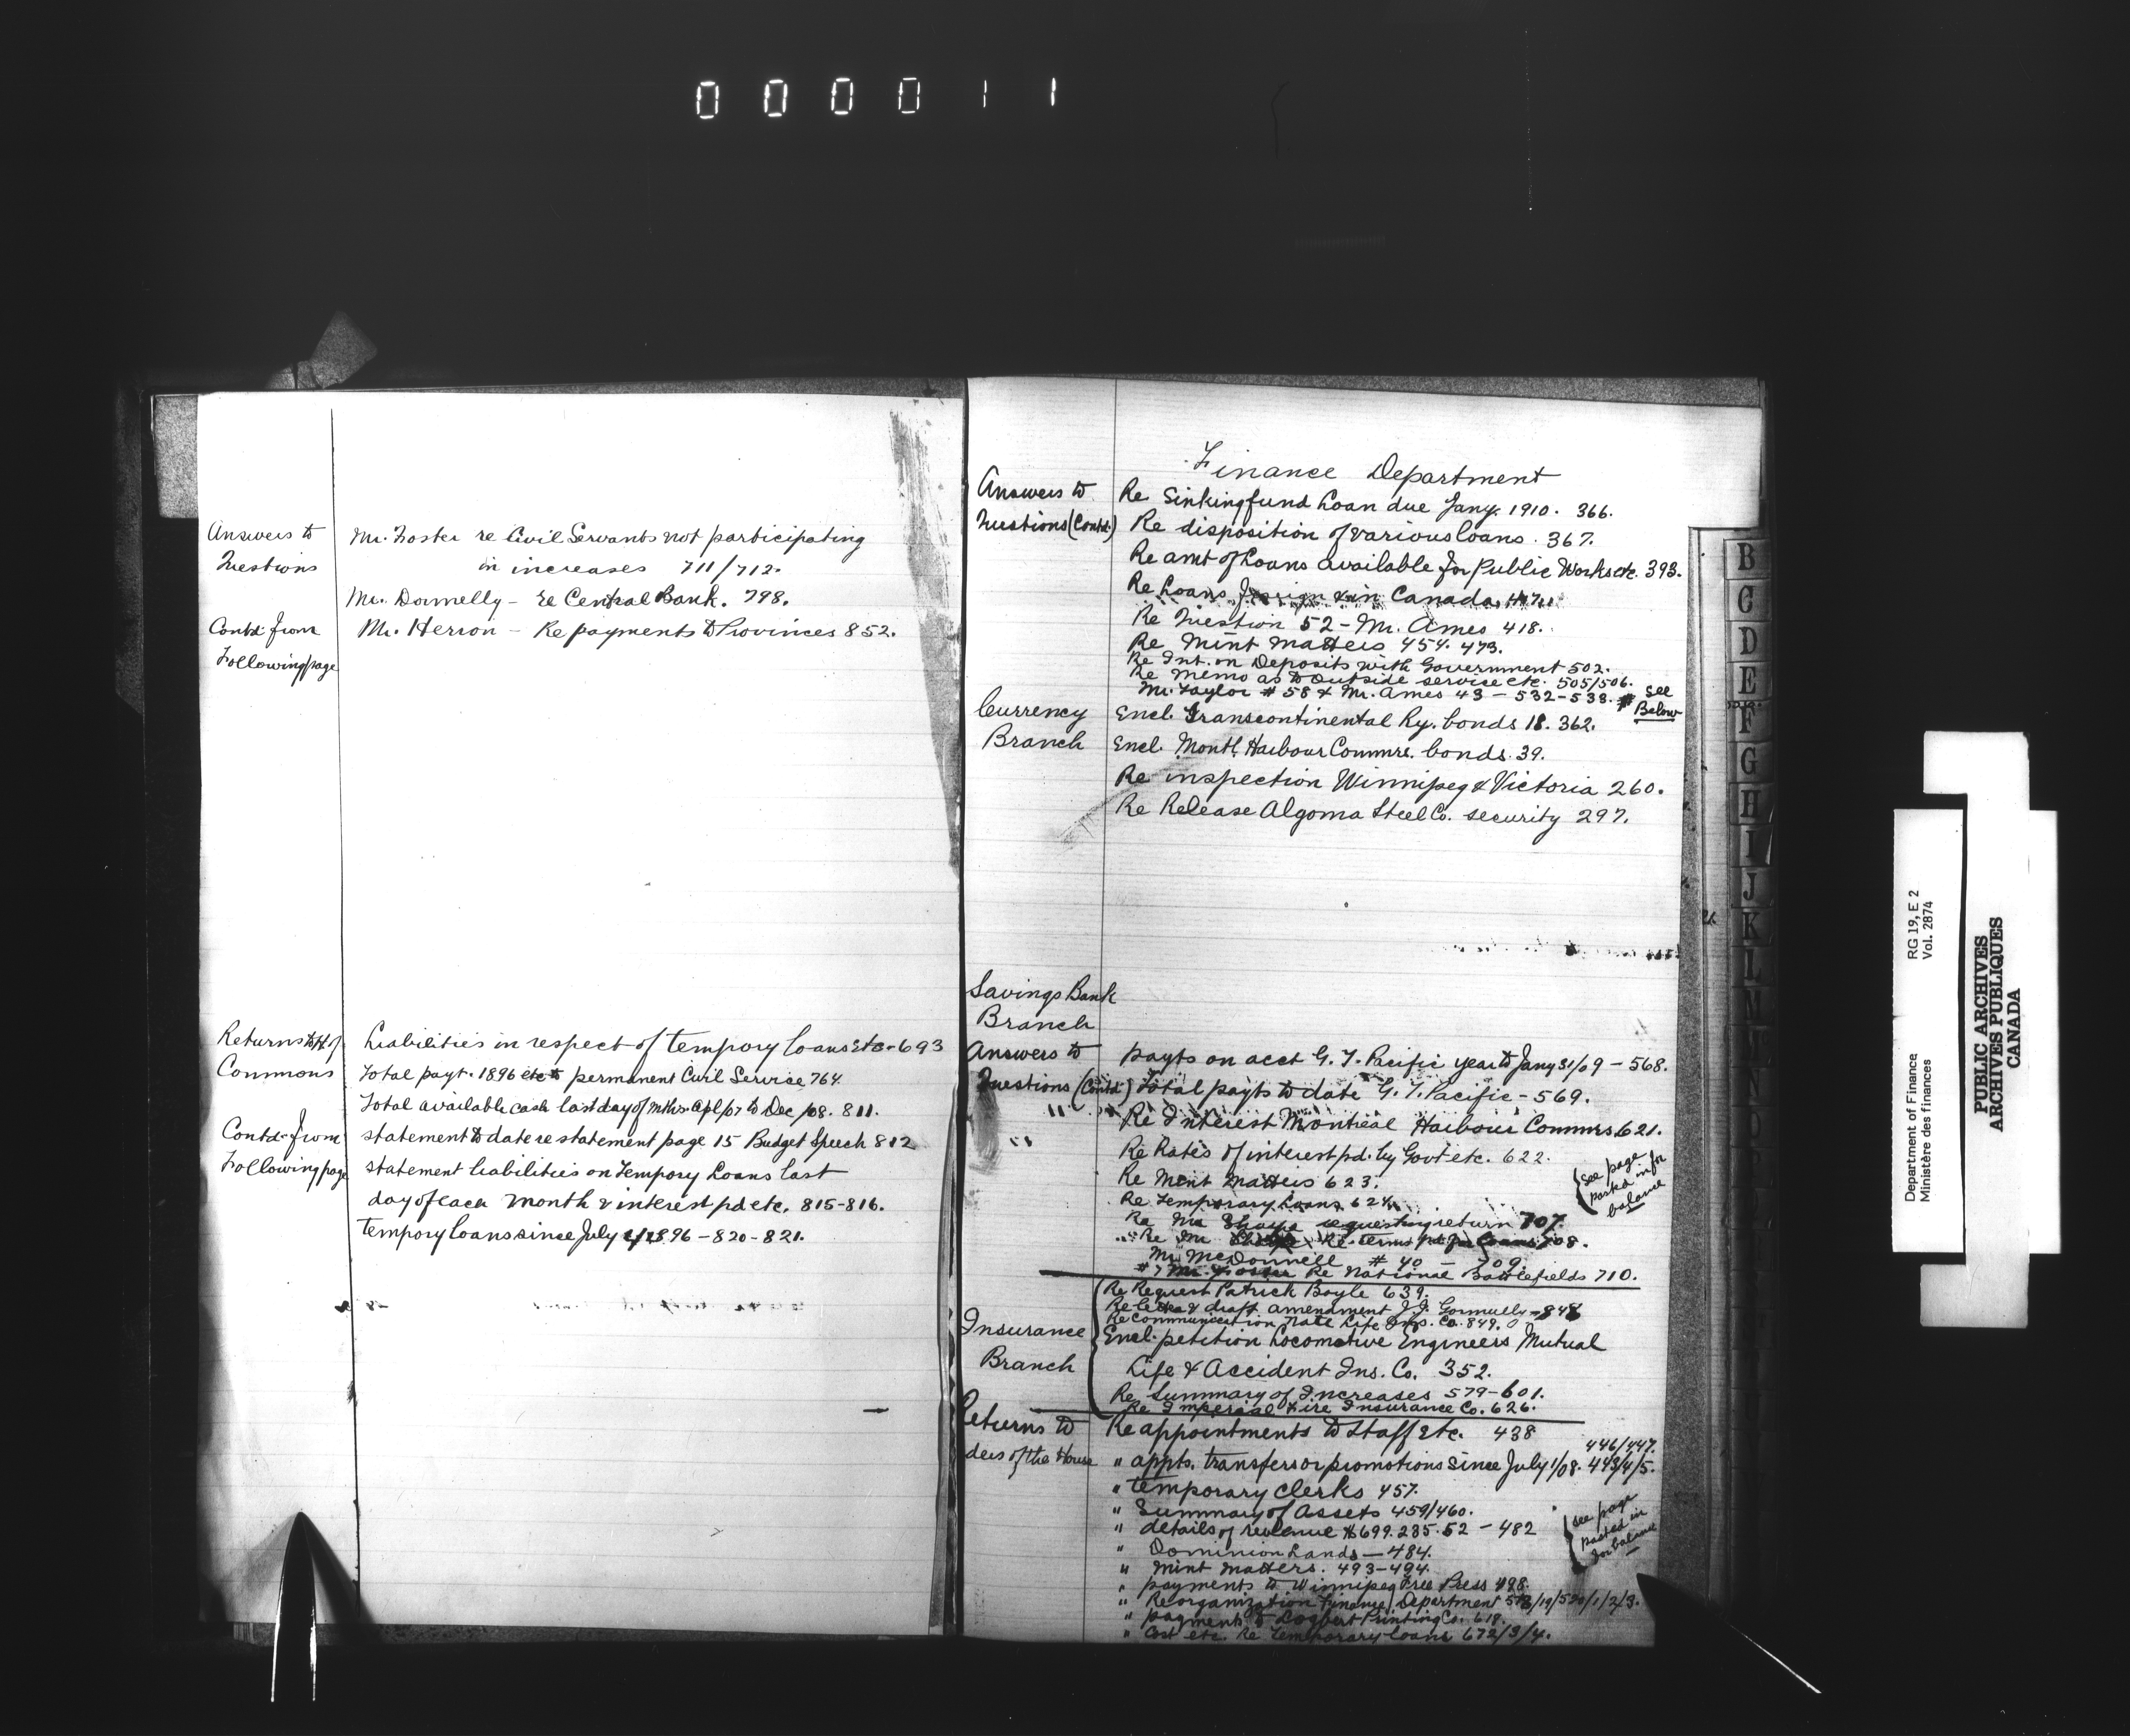 000011
Answers to
Questions
Mr. Foster re Civil Servants not participating
in increases 711/712.
Mr. Donnelly - re Central Bank. 798.
Contd. from
Following page
Mr. Herron - Re payments to Provinces 852.
Returns to H. of
Commons
Liabilities in respect of tempory loans etc - 693
Total payt. 1896 etc to permanent Civil Service 764.
Total available cash last day of mths Apl/07 to Dec/08. 811.
Contd. from
Following page
statement to date re statement page 15 Budget Speech 812
statement liabilities on tempory Loans last
day of each month & interest pd etc. 815-816.
tempory loans since July 1/1896 - 820-821.
Finance Department
Answers to
Questions (Contd.)
Re Sinking fund Loan due Jany. 1910. 366.
Re disposition of various loans. 367.
Re amt of Loans available for Public Works etc. 393.
Re Loans Foreign & in Canada,
Re Question 52 - Mr. Ames 418.
Re Mint Matters 454. 473.
Re Int. on Deposits with Government 502.
Re Memo as to outside service etc. 505/506.
Mr. Taylor # 58 & Mr. Ames 43 - 532-538. # See
Below
Currency
Branch
Encl. Transcontinental Ry. bonds 18. 362.
Encl. Montl. Harbour Commrs. bonds. 39.
Re inspection Winnipeg & Victoria 260.
Re Release Algoma Steel Co. security 297.
Savings Bank
Branch
Answers to
Questions (Contd.)
payts on acct G. T. Pacific year to Jany 31/09 - 568.
Total payts to date G. T. Pacific - 569.
" Re Interest Montreal Harbour Commrs 621.
" Re Rates of interest pd. by Govt etc. 622.
Re Mint Matters 623.
Re Temporary Loans 624.
(see page
pasted in for
balance
Re Mr Sharpe requesting return 707.
Re Mr Re terms for Loans 708.
Mr. McDonnell # 40 - 709.
# 7 Mr. Foster Re National Battlefields 710.
Insurance
Branch
Re Request Patrick Boyle 639.
Re letter & draft amendment J.J. Gormully - 848
Re Communication Natl Life Ins. Co. 849.
Encl. petition Locomotive Engineers Mutual
Life & Accident Ins. Co. 352.
Re Summary of Increases 579-601.
Re Imperial Fire Insurance Co. 626.
Returns to
ders of the House
Re appointments to Staff etc. 438
446/447.
" appts. transfers or promotions since July 1/08. 443/4/5.
" temporary clerks 457.
" Summary of Assets 459/460.
" details of revenue $699.285.52 - 482
" Dominion Lands - 484.
" Mint Matters. 493-494.
(see page
pasted in
for balance
" payments to Winnipeg Free Press 498.
" Reorganization Finance Department 518/19/520/1/2/3.
" payments to Printing Co. 618.
" Cost etc. Re Temporary loans 672/3/4.
B
C
D
E
F
G
H
I
J
K
L
M
Department of Finance
Ministère des finances
RG 19, E 2
Vol. 2874
PUBLIC ARCHIVES
ARCHIVES PUBLIQUES
CANADA